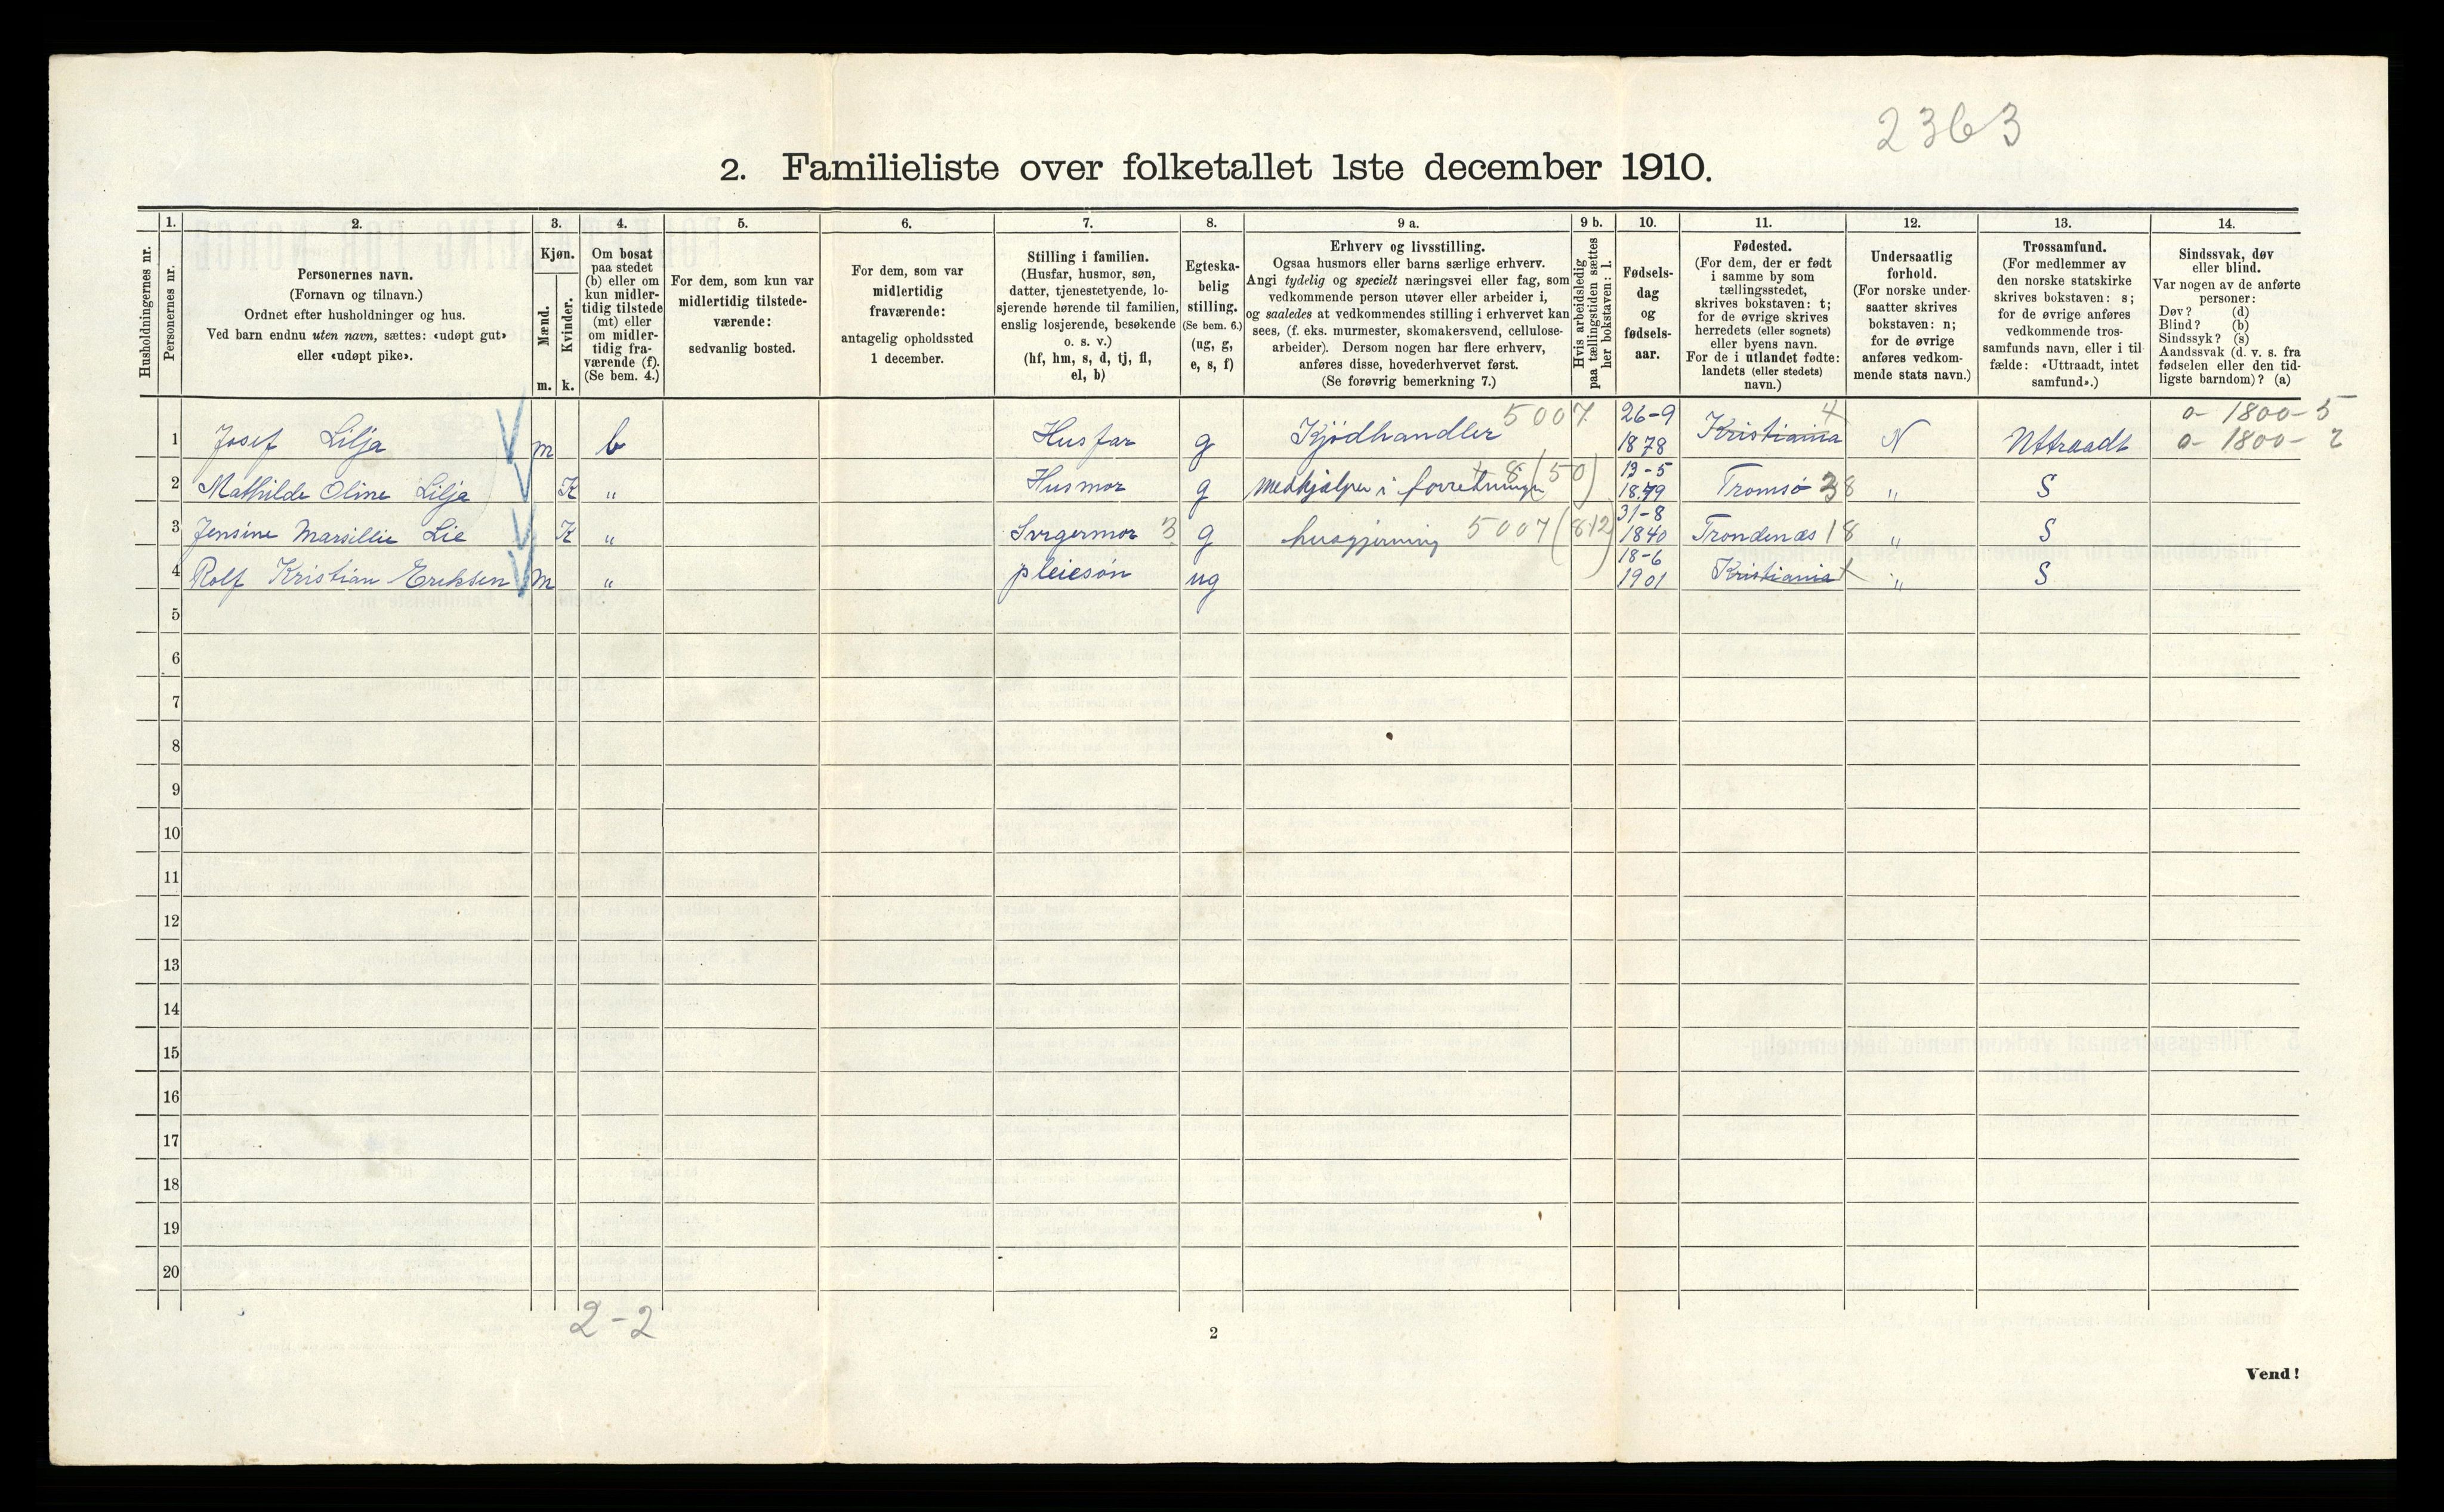 2363
2. Familieliste over folketallet 1ste december 1910.
Husholdningernes nr.
1.
Personernes nr.
2.
Personernes navn.
(Fornavn og tilnavn.)
Ordnet efter husholdninger og hus.
Ved barn endnu uten navn, sættes: «udøpt gut»
eller «udøpt pike».
3.
Kjøn.
Mænd.
Kvinder.
m. k.
4.
Om bosat
paa stedet
(b) eller om
kun midler-
tidig tilstede
(mt) eller
om midler-
tidig fra-
værende (f).
(Se bem. 4.)
5.
For dem, som kun var
midlertidig tilstede-
værende:
sedvanlig bosted.
6.
For dem, som var
midlertidig
fraværende:
antagelig opholdssted
1 december.
7.
Stilling i familien.
(Husfar, husmor, søn,
datter, tjenestetyende, lo-
sjerende hørende til familien,
enslig losjerende, besøkende
o. s. v.)
(hf, hm, s, d, tj, fl,
el, b)
8.
Egteska-
belig
stilling.
(Se bem. 6.)
(ug, g,
e, s, f)
9 a.
Erhverv og livsstilling.
Ogsaa husmors eller barns særlige erhverv.
Angi tydelig og specielt næringsvei eller fag, som
vedkommende person utøver eller arbeider i,
og saaledes at vedkommendes stilling i erhvervet kan
sees, (f. eks. murmester, skomakersvend, cellulose-
arbeider). Dersom nogen har flere erhverv,
anføres disse, hovederhvervet først.
(Se forøvrig bemerkning 7.)
9 b.
Hvis arbeidsledig
paa tællingstiden sættes
her bokstaven: l.
10.
Fødsels-
dag
og
fødsels-
aar.
11.
Fødested.
(For dem, der er født
i samme by som
tællingsstedet,
skrives bokstaven: t;
for de øvrige skrives
herredets (eller sognets)
eller byens navn.
For de i utlandet fødte:
landets (eller stedets)
navn.)
12.
Undersaatlig
forhold.
(For norske under-
saatter skrives
bokstaven: n;
for de øvrige
anføres vedkom-
mende stats navn.)
13.
Trossamfund.
(For medlemmer av
den norske statskirke
skrives bokstaven: s;
for de øvrige anføres
vedkommende tros-
samfunds navn, eller i til-
fælde: «Uttraadt, intet
samfund».)
14.
Sindssvak, døv
eller blind.
Var nogen av de anførte
personer:
Døv? (d)
Blind? (b)
Sindssyk? (s)
Aandssvak (d. v. s. fra
fødselen eller den tid-
ligste barndom)? (a)
1 Josef Lilja m b Husfar g Kjødhandler 5007. 26-9 1878 Kristiania N Uttraadt 0- 1800-5
0- 1800- 2
2 Mathilde Oline Lilja K „ Husmor g medhjælper i forretningen 8 (50) 13-5 1879 Tromsö 38 „ S
3 Jensine Marsillie Lie K „ Svigermor 3 g husgjerning 5007 (812) 31-8 1840 Trondenæs 18 „ S
4 Rolf Kristian Eriksen m „ pleiesön ug 18-6 1901 Kristiania t „ S
5
6
7
8
9
10
11
12
13
14
15
16
17
18
19
20
2-2
2
Vend!